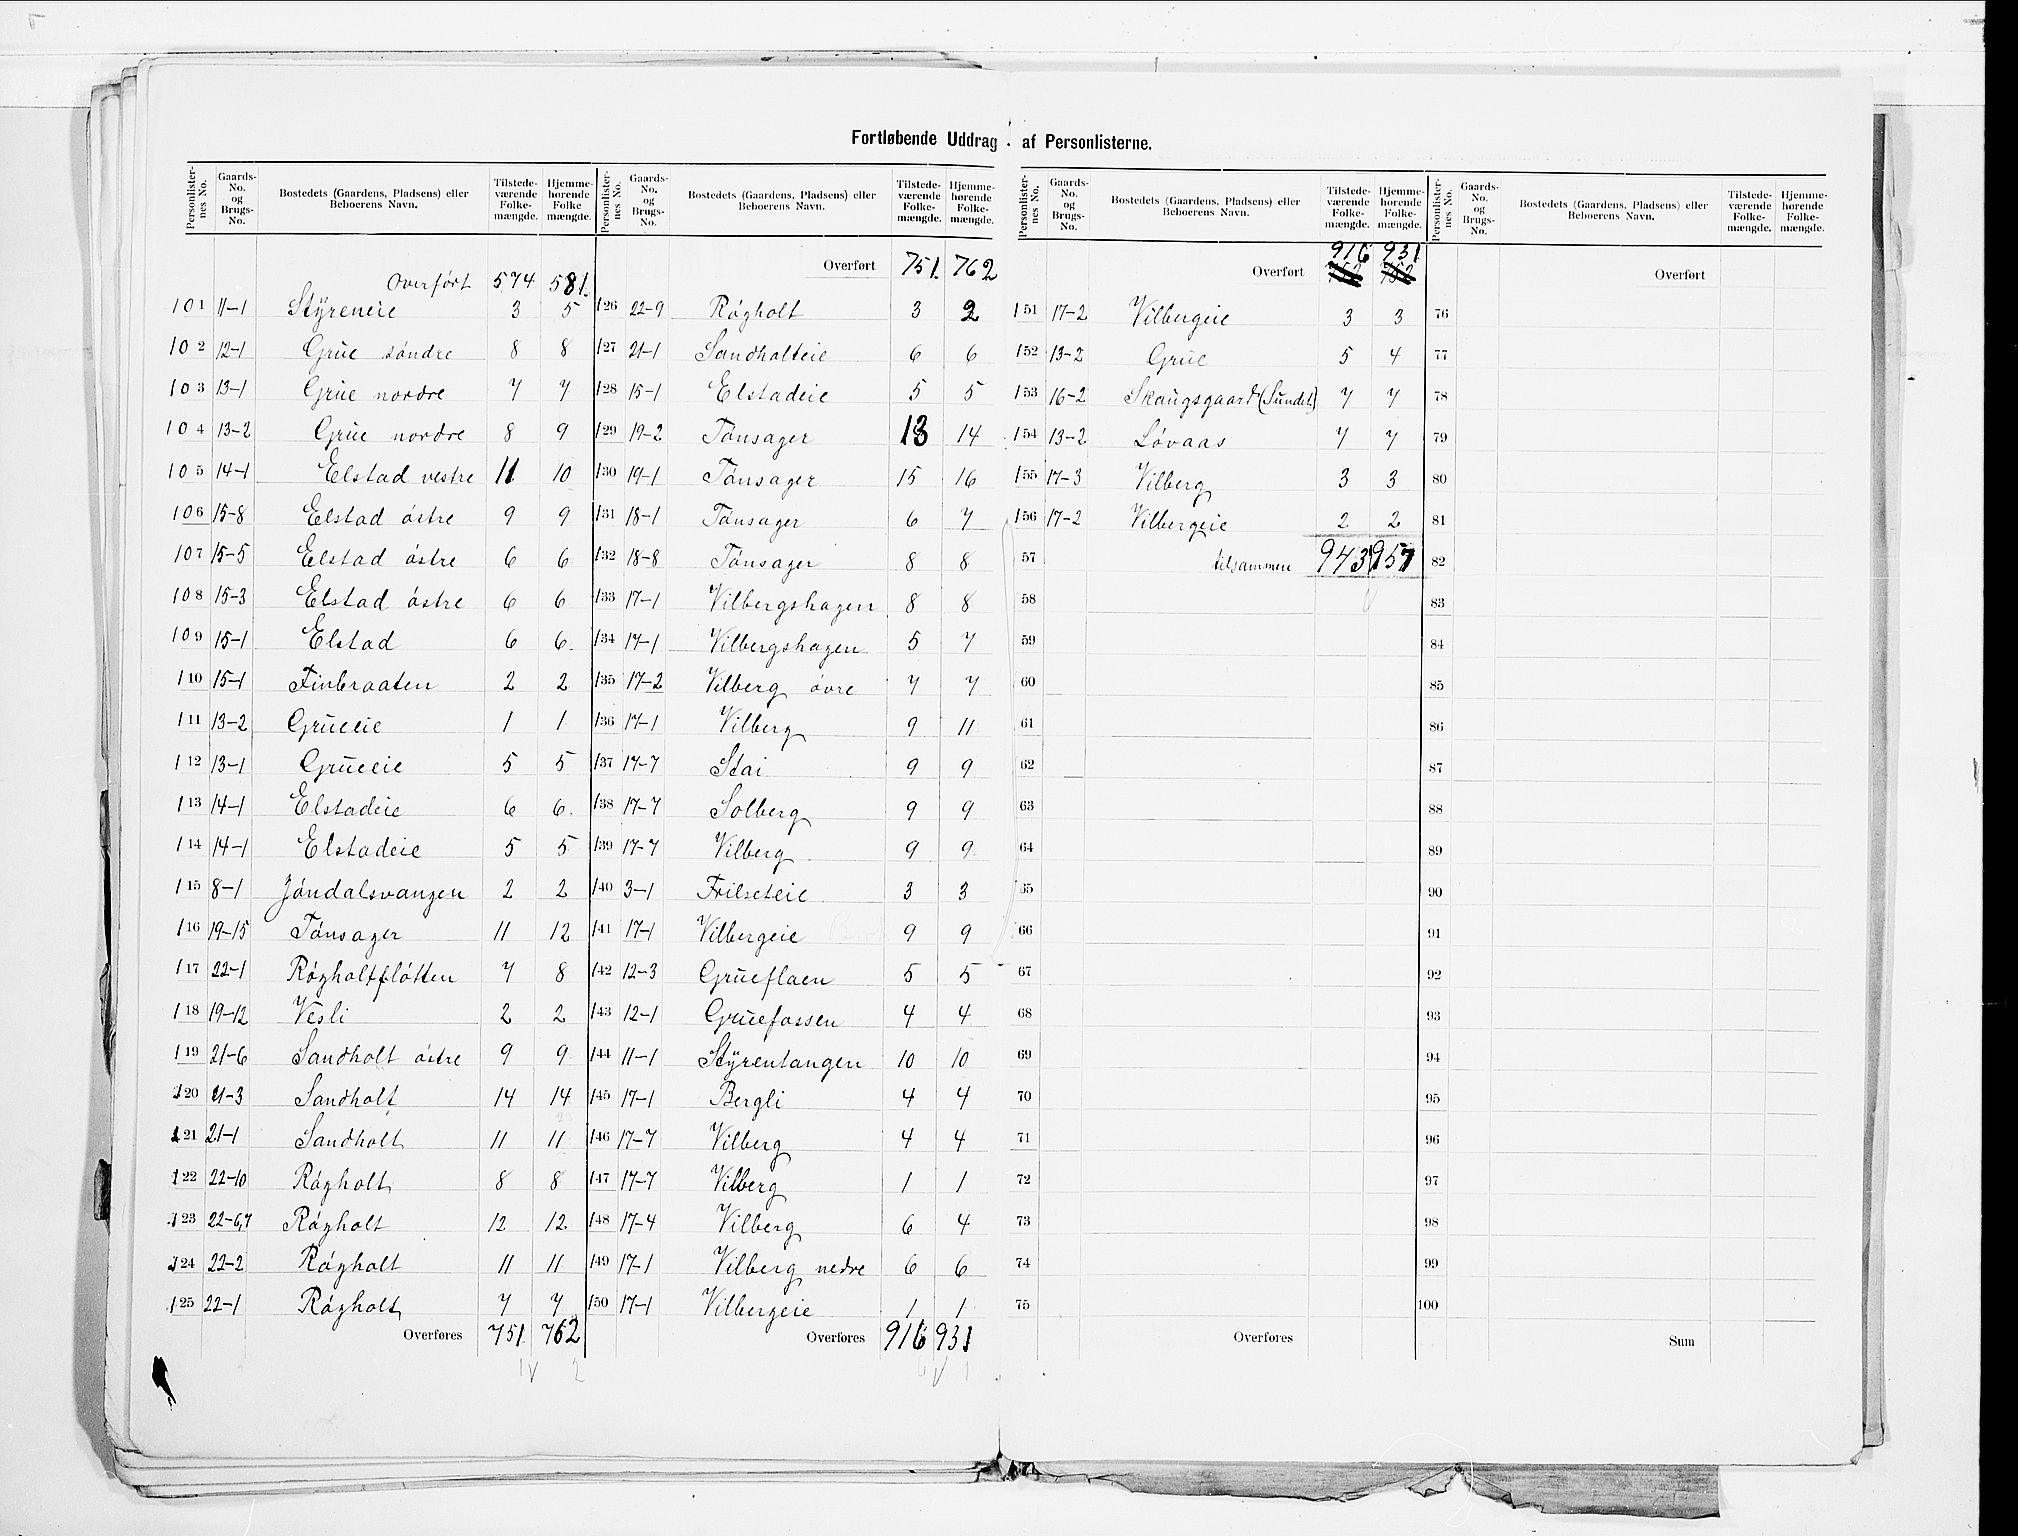 Fortløbende Uddrag af Personlisterne.
Personlister-nes No. Gaards-No. og Brugs-No. Bostedets (Gaardens, Pladsens) eller Beboerens Navn. Tilstede-værende Folke-mængde. Hjemme-hørende Folke mængde.
Overført 574 581.
101 11-1 Styreneie 3 5
102 12-1 Grue søndre 8 8
103 13-1 Grue nordre 7 7
104 13-2 Grue nordre 8 9
105 14-1 Elstad vestre 11 10
106 15-8 Elstad østre 9 9
107 15-5 Elstad østre 6 6
108 15-3 Elstad østre 6 6
109 15-1 Elstad 6 6.
110 15-1 Finbraaten 2 2
111 13-2 Grueeie 1 1
112 13-1 Grueeie 5 5
113 14-1 Elstadeie 6 6.
114 14-1 Elstadeie 5 5
115 8-1 Jøndalsvangen 2 2
116 19-15 Tønsager 11 12
117 22-1 Røgholtfløtten 7 8
118 19-12 Vesli 2 2
119 21-6 Sandholt østre 9 9
120 21-3 Sandholt 14 14
121 21-1 Sandholt 11 11
122 22-10 Røgholt 8 8
123 22-6,7 Røgholt 12 12
124 22-2 Røgholt 11 11
125 22-1 Røgholt 7 7
Overføres 751. 762
Personlister-nes No. Gaards-No. og Brugs-No. Bostedets (Gaardens, Pladsens) eller Beboerens Navn. Tilstede-værende Folke-mængde. Hjemme-hørende Folke-mængde.
Overført 751. 762
126 22-9 Røgholt 3 2
127 21-1 Sandholteie 6 6
128 15-1 Elstadeie 5 5
129 19-2 Tønsager 13 14
130 19-1 Tønsager 15 16
131 18-1 Tønsager 6 7
132 18-8 Tønsager 8 8
133 17-1 Vilbergshagen 8 8
134 17-1 Vilbergshagen 5 7
135 17-2 Vilberg øvre 7 7
136 17-1 Vilberg 9 11
137 17-7 Stai 9 9
138 17-7 Solberg 9 9
139 17-7 Vilberg 9 9
140 3-1 Frilseteie 3 3
141 17-1 Vilbergeie 9 9
142 12-3 Grueflaen 5 5
143 12-1 Gruefossen 4 4
144 11-1 Styrentangen 10 10
145 17-1 Bergli 4 4
146 17-7 Vilberg 4 4
147 17-7 Vilberg 1 1
148 17-4 Vilberg 6 4
149 17-1 Vilberg nedre 6 6
150 17-1 Vilbergeie 1 1
Overføres 916 931
Personlister-nes No. Gaards-No. og Brugs-No. Bostedets (Gaardens, Pladsens) eller Beboerens Navn. Tilstede-værende Folke-mængde. Hjemme-hørende Folke-mængde.
916 931
Overført
151 17-2 Vilbergeie 3 3
152 13-2 Grue 5 4
153 16-2 Skaugsgaard (Sundet) 7 7
154 13-2 Løvaas 7 7
155 17-3 Vilberg 3 3
156 17-2 Vilbergeie 2 2
57 tilsammen 943 957
58
59
60
61
62
63
64
65
66
67
68
69
70
71
72
73
74
75
Overføres
Personlister-nes No. Gaards-No. og Brugs-No. Bostedets (Gaardens, Pladsens) eller Beboerens Navn. Tilstede-værende Folke-mængde. Hjemme-hørende Folke-mængde.
Overført
76
77
78
79
80
81
82
83
84
85
86
87
88
89
90
91
92
93
94
95
96
97
98
99
100
Sum